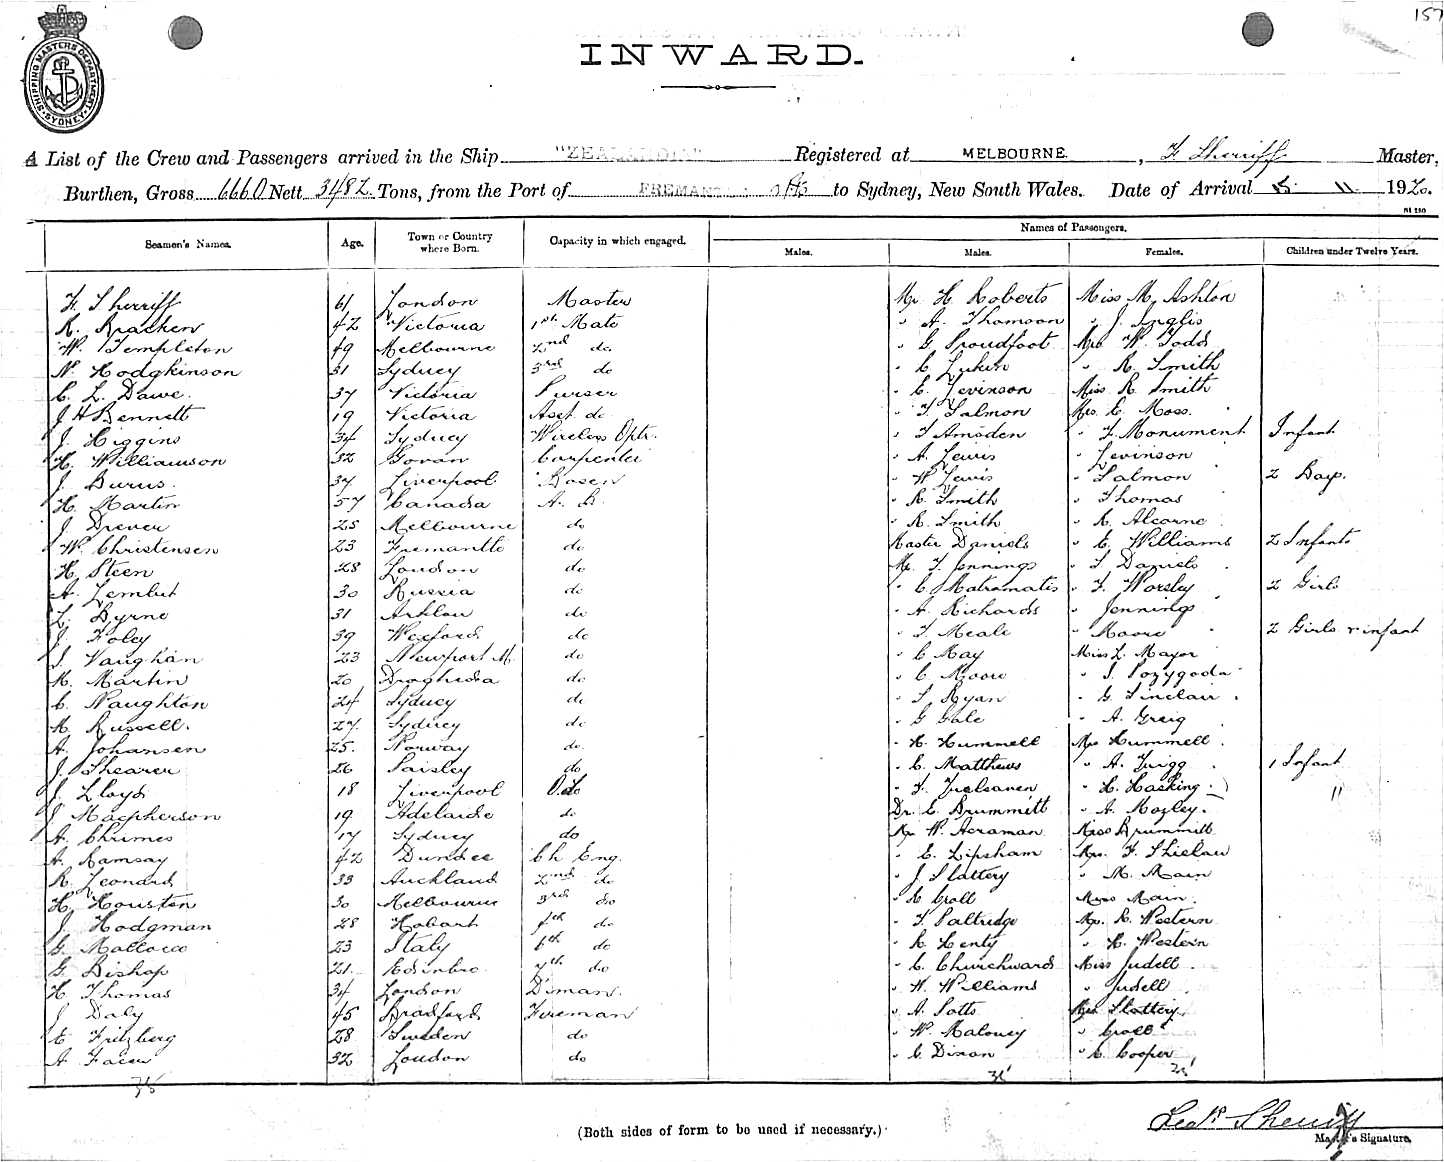 157
INWARD.
SHIPPING MASTERS DEPARTMENT SYDNEY
A List of the Crew and Passengers arrived in the Ship "ZEALANDIA" Registered at MELBOURNE. , F. Sherriff Master,
Burthen, Gross 6660 Nett 3482 Tons, from the Port of FREMANTLE to Sydney, New South Wales. Date of Arrival 15 11 1920.
Seamen's Names. Age. Town or Country where Born. Capacity in which engaged. Names of Passengers.
Males. Males. Females. Children under Twelve Years.
F. Sherriff 61 London Master Mr. H. Roberts Miss M. Ashton
R. Bracken 42 Victoria 1st Mate " A. Thomson " J. Inglis
W. Templeton 49 Melbourne 2nd do " G Proudfoot Mrs W. Todd
N. Hodgkinson 31 Sydney 3rd do " C Lukin " R. Smith
C. L. Dawe. 37 Victoria Purser " E. Levinson Miss R. Smith
J H Bennett 19 Victoria Asst do " F. Salmon Mrs. E. Moss.
J. Higgins 34 Sydney Wireless Optr. " F Amsden " F. Monument Infant
H. Williamson 32 Govan Carpenter " A. Lewis " Levinson
J. Burns. 37 Liverpool Bosen " W Lewis " Salmon 2 Boys.
H. Martin 57 Canada A. B. " R. Smith " Thomas
J. Drever 25 Melbourne do " R. Smith " R. Alcorne
W. Christensen 23 Fremantle do Master Daniels " E. Williams 2 Infants
H. Steen 28 London do Mr. F. Jennings " F. Daniels
A. Lembit 30 Russia do " C. Matramatis " F. Worsley 2 Girls
L. Byrne 31 Arklow do " A. Richards " Jennings
J. Foley 39 Wexford do " F. Meale " Moore 2 Girls & infant
J. Vaughan 23 Newport M. do " C Kay Miss L. Mayor
K. Martin 20 Drogheda do " C Moore
C. Naughton 24 Sydney do " T. Ryan " G. Sinclair
H. Russell. 27 Sydney do " G Gale " A. Greig
A. Johansen 25. Norway do " H. Hummell Mrs Hummell
J. Shearer 26 Paisley do " C. Matthews " A. Trigg 1 Infant
J. Lloyd 18 Liverpool O.S. " F. Treleaven " H. Hosking
J. Macpherson 19 Adelaide do Dr. E. Brummitt " A. Mozley.
A. Chrimes 17 Sydney do Mr W. Acraman Miss Brummitt
A. Ramsay 42 Dundee Ch Eng. " E. Lipsham Mrs. F. Shielaw
R. Leonard 33 Auckland 2nd do " J. Slattery " M. Main
H. Houston 30 Melbourne 3rd do " R Croll Miss Main.
J. Hodgman 28 Hobart do " F. Paltridge Mrs. R. Western
G. 23 Italy 6th do " R Henty " H. Western
G. Bishop 21. Edinbro 7th do " C. Churchward Miss Judell.
H. Thomas 34 London " H. Williams " Judell
J. Daly 45 Bradford Fireman " A. Potts Mrs Slattery.
E Fritzberg 28 Sweden do " W. Maloney " Croll
A 32 London do " C Dixon " C. Cooper
35 35 25
(Both sides of form to be used if necessary.)
Sherriff
Master's Signature.